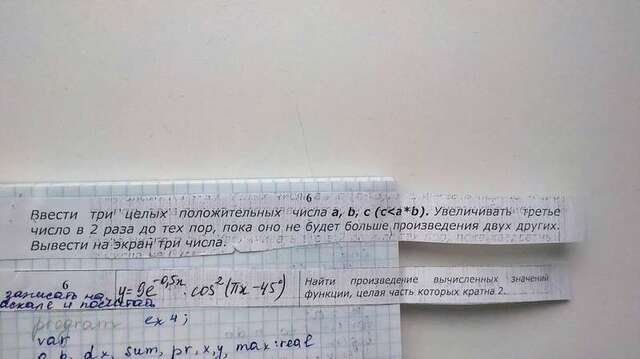 6
Ввести три целых положительных числа a, b, c (c<a*b). Увеличивать третье
число в 2 раза до тех пор, пока оно не будет больше произведения двух других.
Вывести на экран три числа.
6
y=9e^-0,5x cos²(πx-45°)
Найти произведение вычисленных значений
функции, целая часть которых кратна 2.
записать на
и посчитать
program ex 4;
var
a, b, dx, sum, pr, x, y, max:real